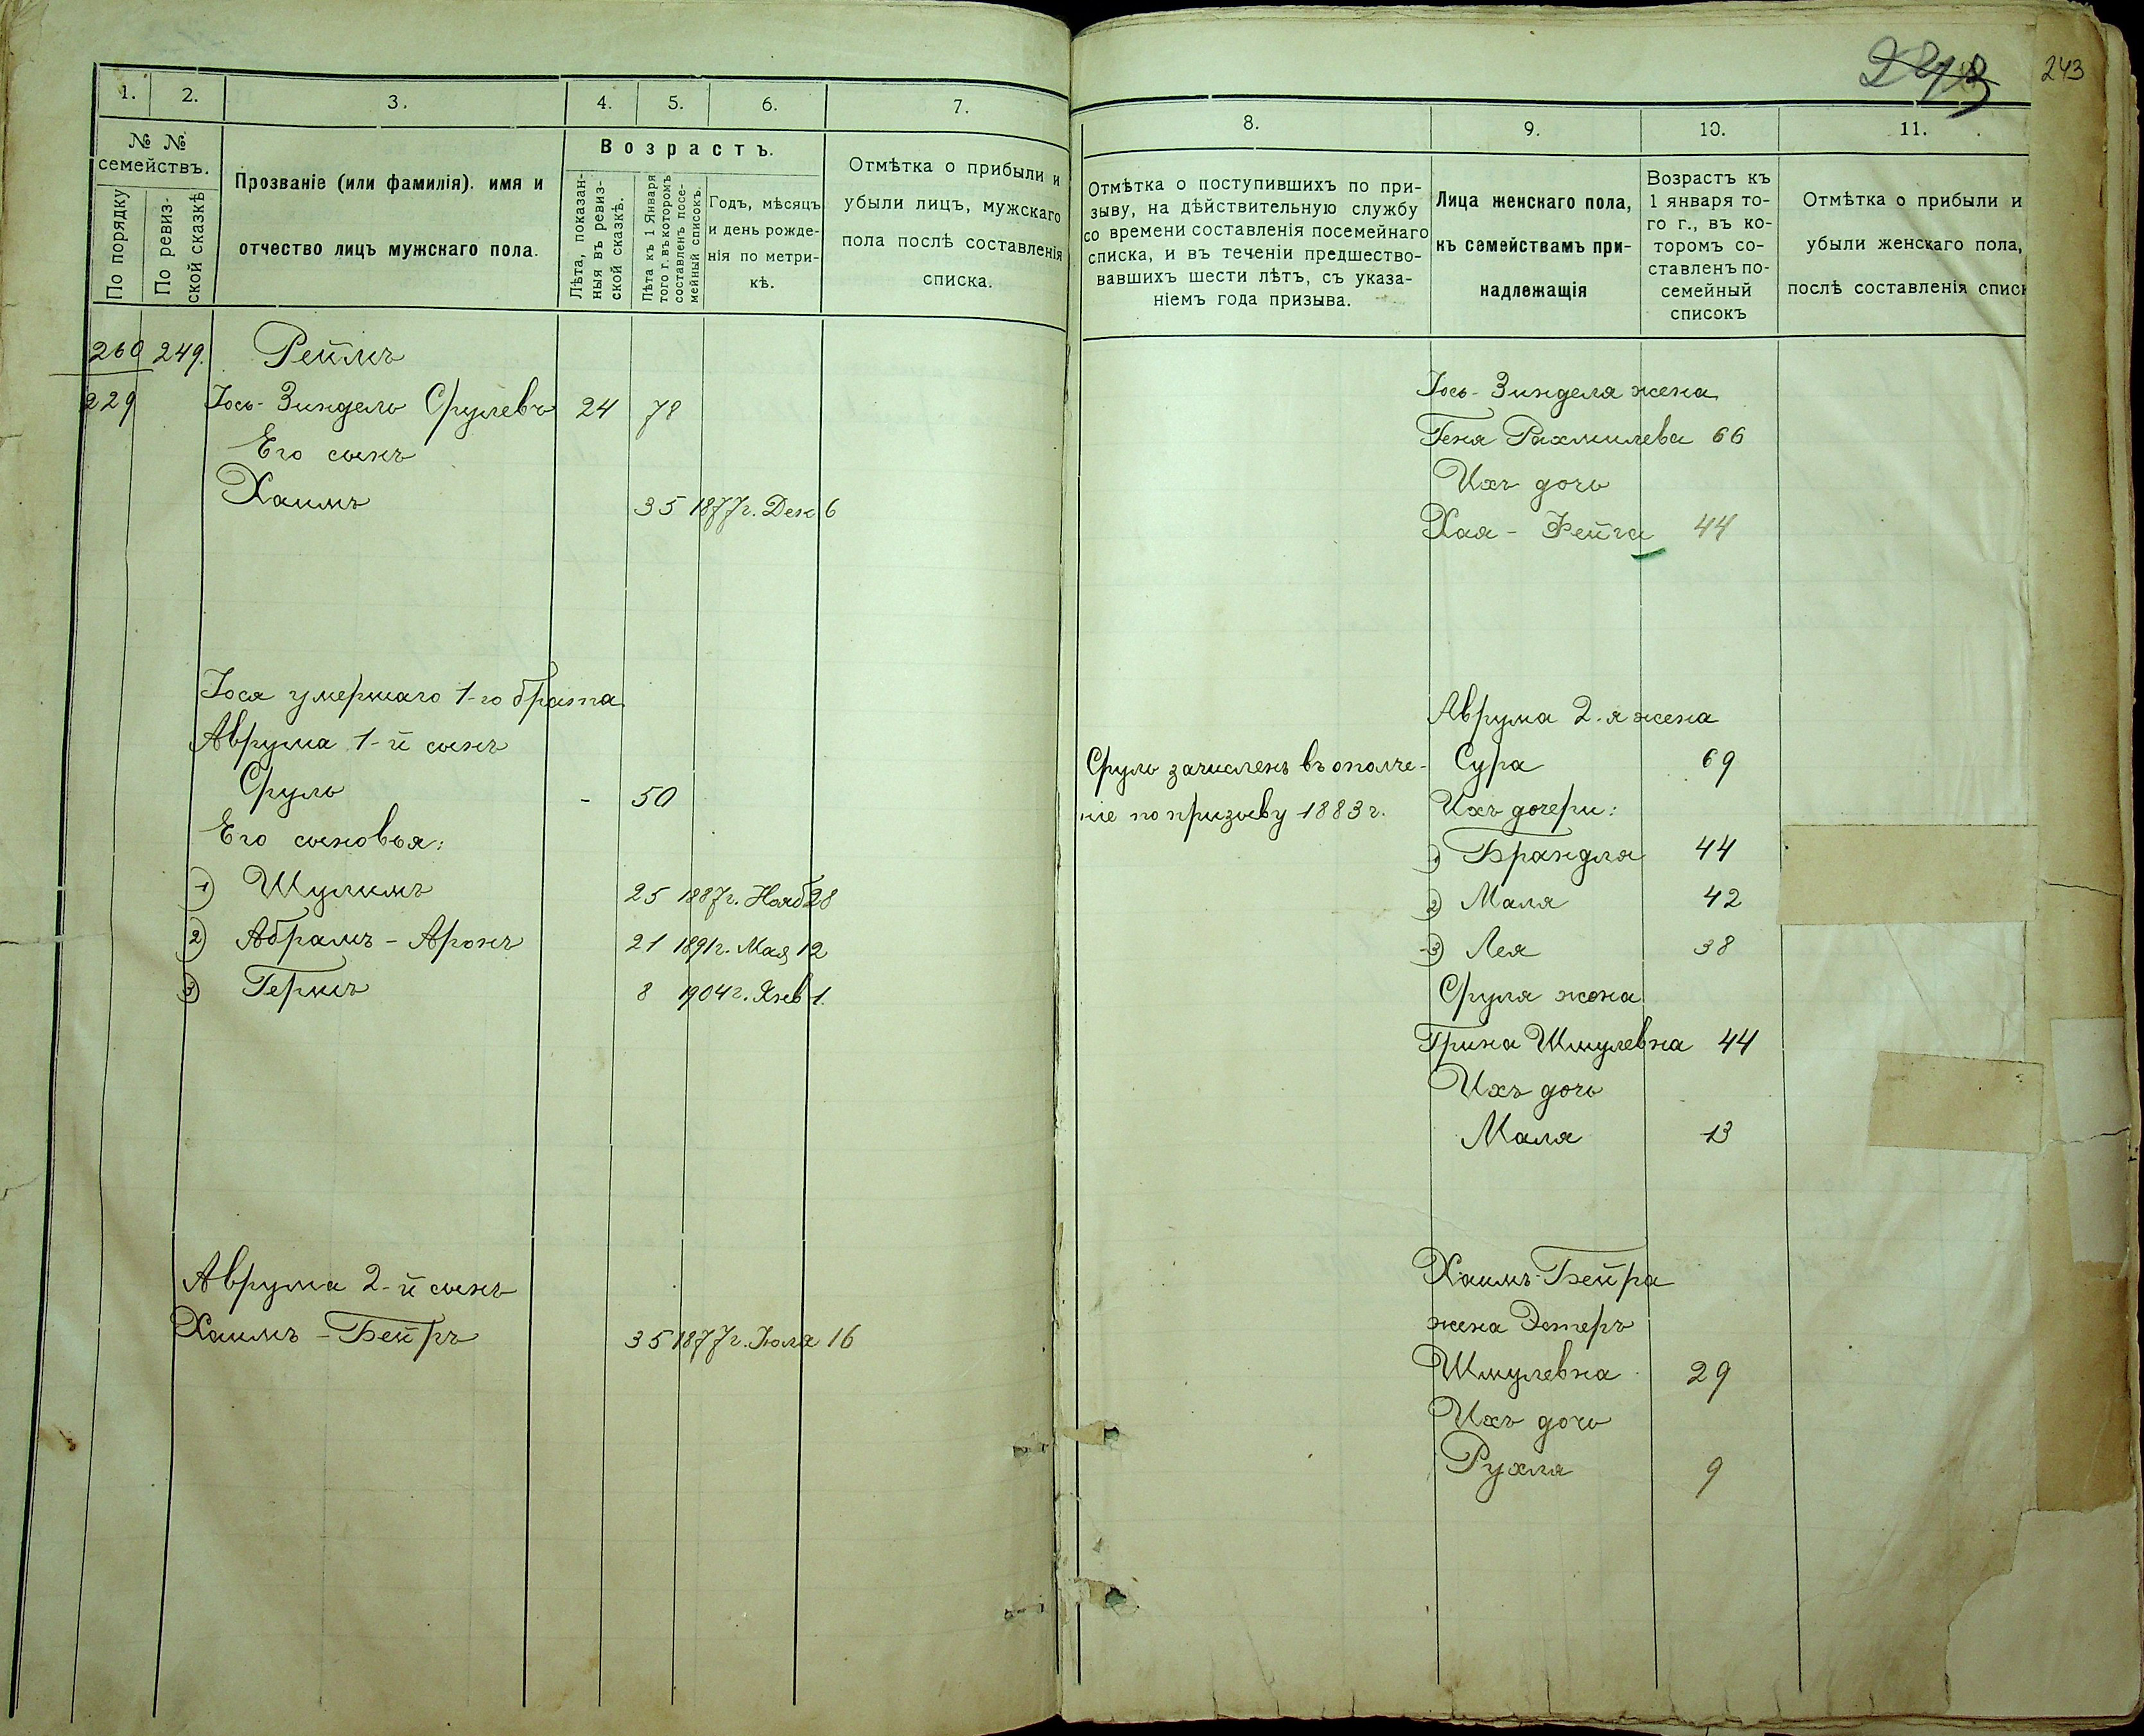 1. 2. 3. 4. 5. 6. 7.
№ №
семействъ.
По порядку
По ревиз-
ской сказкѣ
Прозваніе (или фамилія). имя и
отчество лицъ мужскаго пола.
Возрастъ.
Лѣта, показан-
ныя въ ревиз-
ской сказкѣ.
Лѣта къ 1 Января
того г. въ которомъ
составленъ посе-
мейный списокъ.
Годъ, мѣсяцъ
и день рожде-
нія по метри-
кѣ.
Отмѣтка о прибыли и
убыли лицъ, мужскаго
пола послѣ составленія
списка.
260 249. Реймъ
229 Іось-Зиндель Срулевъ 24 78
Его сынъ
Хаимъ 35 1877г. Дек 6
Іося умершаго 1-го брата
Аврума 1-й сынъ
Сруль - 50
Его сыновья:
1) Шулимъ 25 1887г. Нояб 28
2) Абрамъ-Аронъ 21 1891г. Мая 12
3) Гершъ 8 1904г. Янв 1.
Аврума 2-й сынъ
Хаимъ-Бейръ 35 1877г. Іюля 16
243 243
8. 9. 10. 11.
Отмѣтка о поступившихъ по при-
зыву, на дѣйствительную службу
со времени составленія посемейнаго
списка, и въ теченіи предшество-
вавшихъ шести лѣтъ, съ указа-
ніемъ года призыва.
Лица женскаго пола,
къ семействамъ при-
надлежащія
Возрастъ къ
1 января то-
го г., въ ко-
торомъ со-
ставленъ по-
семейный
списокъ
Отмѣтка о прибыли и
убыли женскаго пола,
послѣ составленія списк
Іось-Зинделя жена
Геня Рахмилева 66
Ихъ дочь
Хая-Фейга 44
Аврума 2-я жена
Сруль зачисленъ въ ополче- Сура 69
ніе по призыву 1883г. Ихъ дочери:
1) Брандля 44
2) Маля 42
3) Лея 38
Сруля жена
Грина Шмулевна 44
Ихъ дочь
Маля 13
Хаимъ-Бейра
жена Эстеръ
Шмулевна 29
Ихъ дочь
Рухля 9